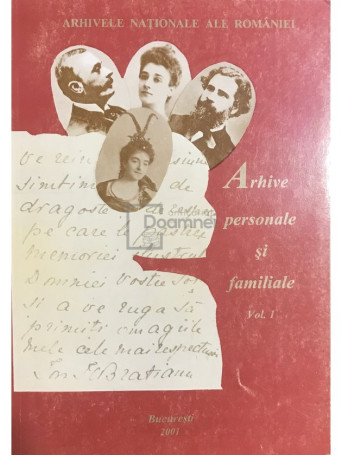 ARHIVELE NAȚIONALE ALE ROMÂNIEI
Arhive
personale
și
familiale
Vol. I
simtim de
dragoste de
pe care le
memoriei
Domniei Vostre
si a ve ruga să
primiti omagiile
mele cele mai respectuose
Ion I C Bratianu
București
2001